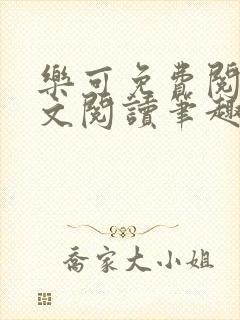 樂可免費閱
文閱讀筆趣
喬家大小姐